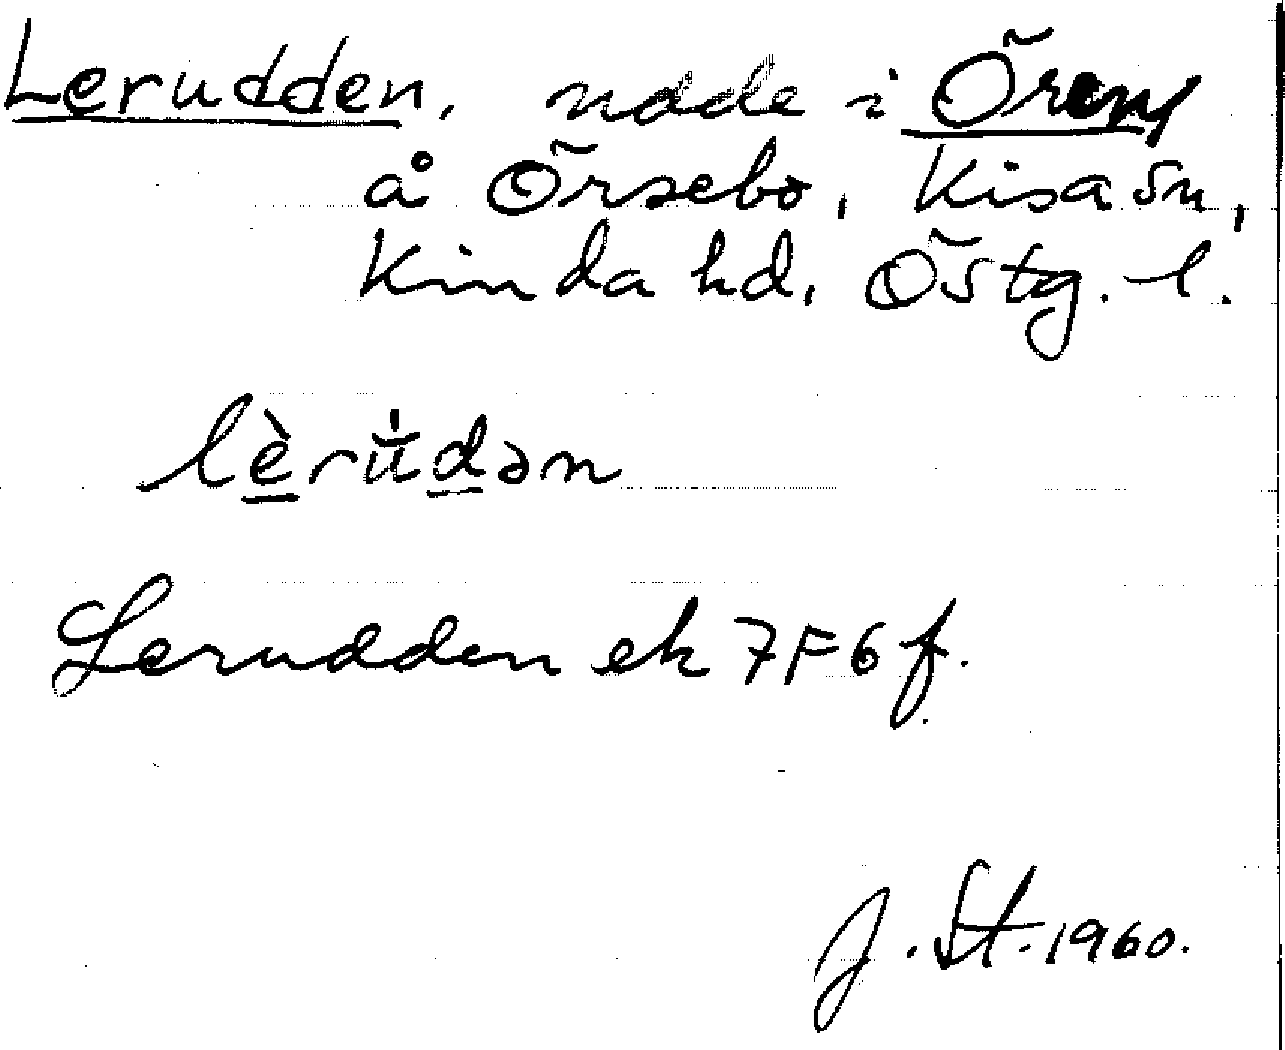 Lerudden, udde i Ören,
å Örsebo, Kisa sn,
Kinda hd, Östg. l.
lèrùdən
Lerudden ek 7F6f.
J. St. 1960.